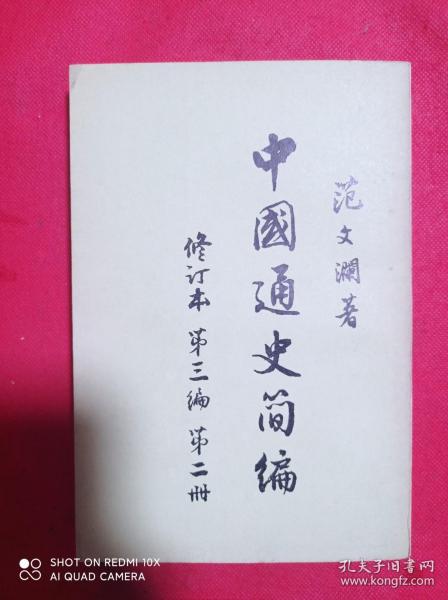 范文瀾著
中國通史简编
修订本 第三编 第二册
SHOT ON REDMI 10X
AI QUAD CAMERA
孔夫子旧书网
www.kongfz.com